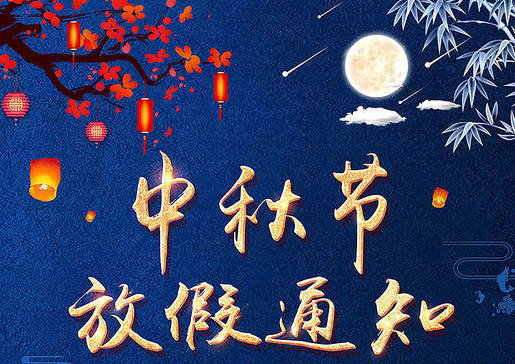 中秋节
放假通知